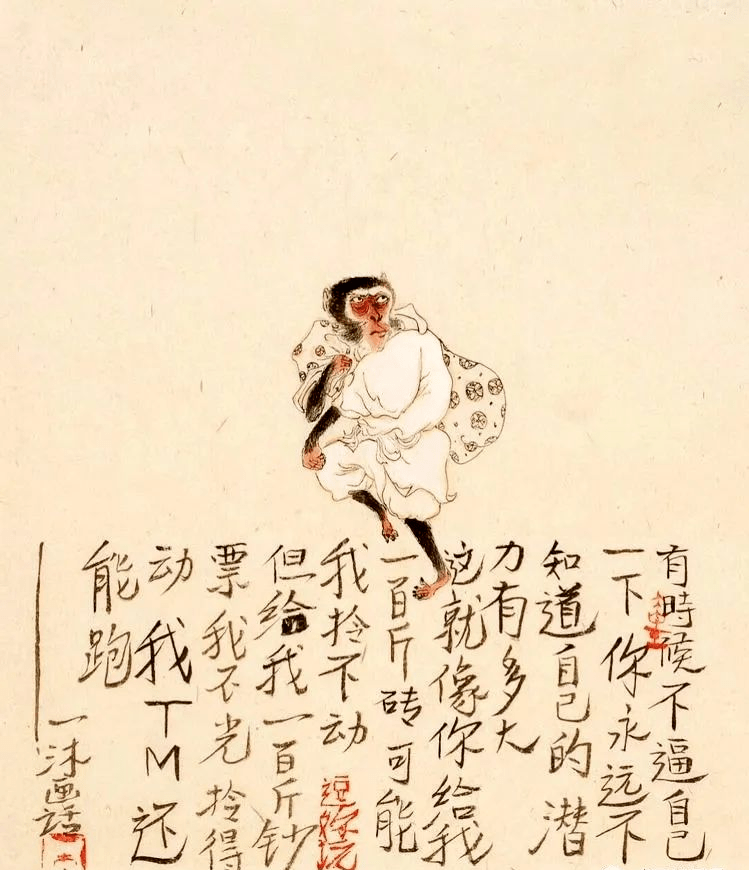 有時候不逼自己
一下你永远不
知道自己的潜
力有多大
这就像你给我
一百斤砖可能
我拎不动
但给我一百斤钞
票我不光拎得
动我TM还
能跑
一沐画话